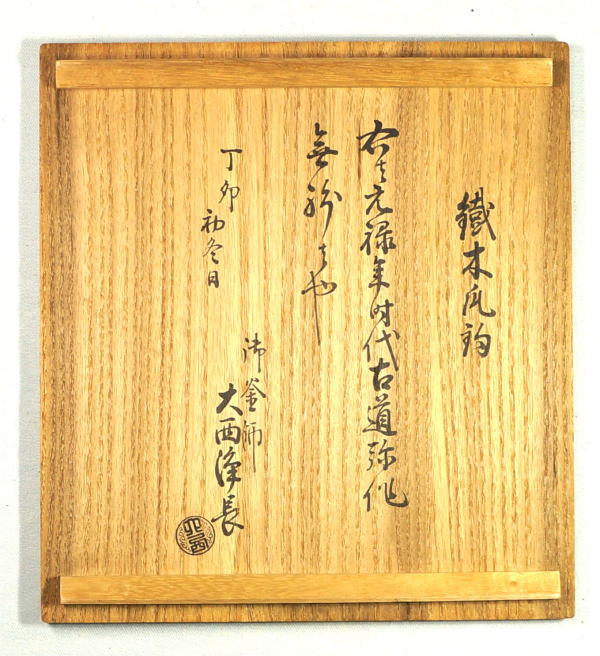 鐵木瓜
右者元禄年時代古道弥作
無紛者也
丁卯 初冬日
御釜師
大西浄長
大西